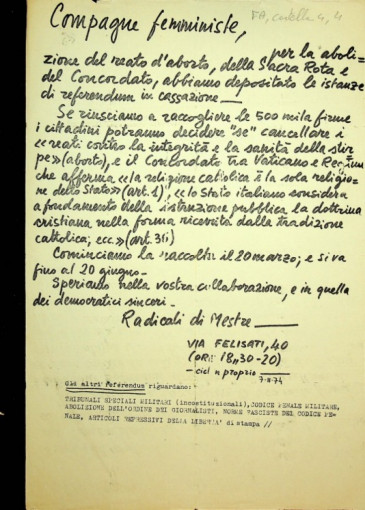 Compagne femministe,
FA, cartella 4, 4
per la aboli-
zione del reato d'aborto, della Sacra Rota e
del Concordato, abbiamo depositato le istanze
di referendum in cassazione —
Se riusciamo a raccogliere le 500 mila firme
i cittadini potranno decidere "se" cancellare i
«reati contro la integrità e la sanità della stir
pe» (aborto), e il Concordato tra Vaticano e
che afferma «la religione cattolica è la sola religio-
ne dello Stato» (art. 1), «lo Stato italiano considera
a fondamento della istruzione pubblica la dottrina
cristiana nella forma ricevuta dalla tradizione
cattolica, ecc.» (art. 36)
Cominciamo la raccolta il 20 marzo, e si va
fino al 20 giugno -
Speriamo nella vostra collaborazione, e in quella
dei democratici sinceri -
Radicali di Mestre —
VIA FELISATI, 40
(ore 18,30-20)
- cicl n proprio
7-II-74
Gli altri referendum riguardano:
TRIBUNALI SPECIALI MILITARI (incostituzionali), CODICE PENALE MILITARE,
ABOLIZIONE DELL'ORDINE DEI GIORNALISTI, NORME FASCISTE DEL CODICE PE-
NALE, ARTICOLI REPRESSIVI DELLA LIBERTA' di stampa //